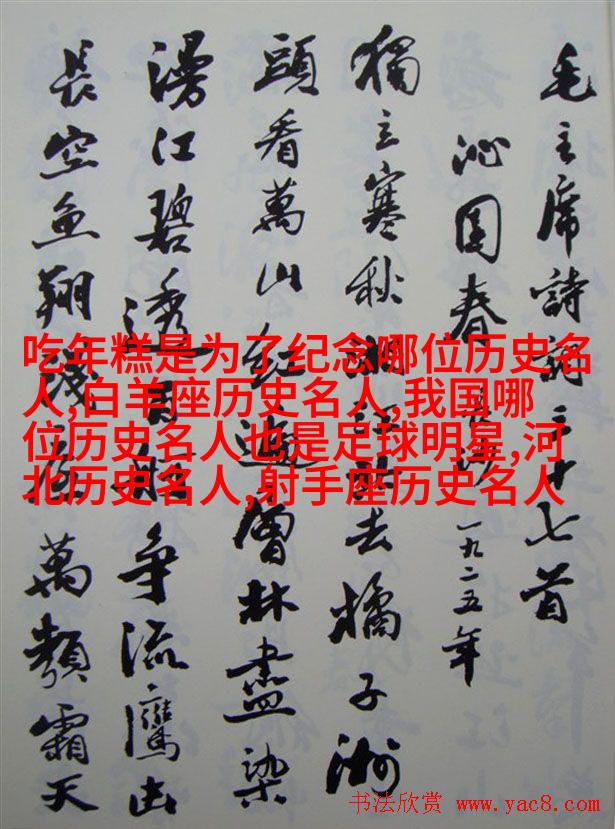 毛主席詩詞三十七首
沁园春 長沙 一九二五年
獨立寒秋湘江北去橘子洲
頭看萬山紅遍層林盡染
漫江碧透百舸争流鷹击
長空魚翔淺底萬類霜天
吃年糕是为了纪念哪位历史名
人,白羊座历史名人,我国哪
位历史名人也是足球明星,河
北历史名人,射手座历史名人
书法欣赏 www.yac8.com